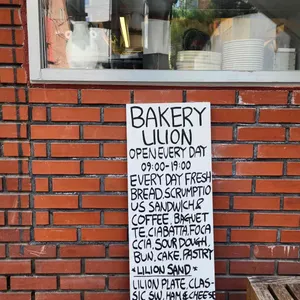 BAKERY
LILION
OPEN EVERY DAY
09:00-19:00
EVERY DAY FRESH
BREAD. SCRUMPTIO
US SANDWICH &
COFFEE. BAGUET
TE. CIABATTA. FOCA
CCIA. SOUR DOUGH.
BUN. CAKE. PASTRY
*LILION SAND.*
LILION PLATE, CLAS-
SIC SW. HAM & CHEESE